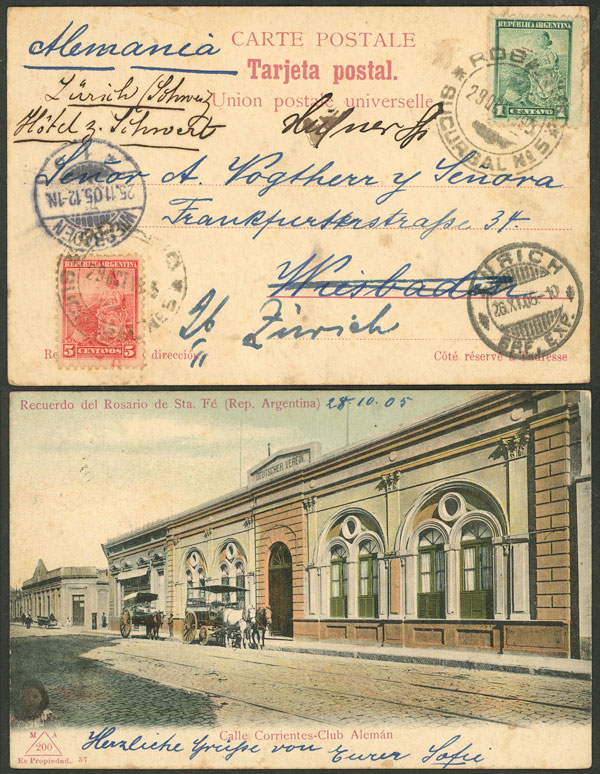 Alemania
CARTE POSTALE
Tarjeta postal.
Union postale universelle
Zürich (Schweiz
Hôtel z. Schwert
REPÚBLICA ARGENTINA
1 CENTAVO 1
SUCURSAL No 5
Señor A. Vogtherr y Señora
Frankfurterstraße 34.
Wiesbaden
Zürich
25.11.05.12-1N.
WIESBADEN
REPUBLICA ARGENTINA
5 CENTAVOS 5
ZÜRICH
26.XI.05.-10
BRF. EXP.
dirección
Côté réservé à l'adresse
Recuerdo del Rosario de Sta. Fé (Rep. Argentina) 28.10.05
DEUTSCHER VEREIN
Calle Corrientes-Club Alemán
M A
200
Es Propiedad. 57
Herzliche Grüße von Eurer Sofie